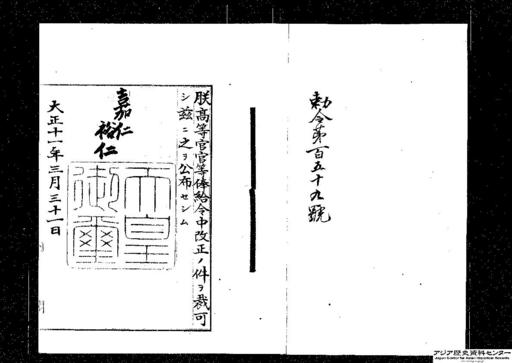 勅令第百五十九號
朕高等官官等俸給令中改正ノ件ヲ裁可
シ茲ニ之ヲ公布セシム
嘉仁
裕仁
天皇
御璽
大正十一年三月三十一日
アジア歴史資料センター
Japan Center for Asian Historical Records